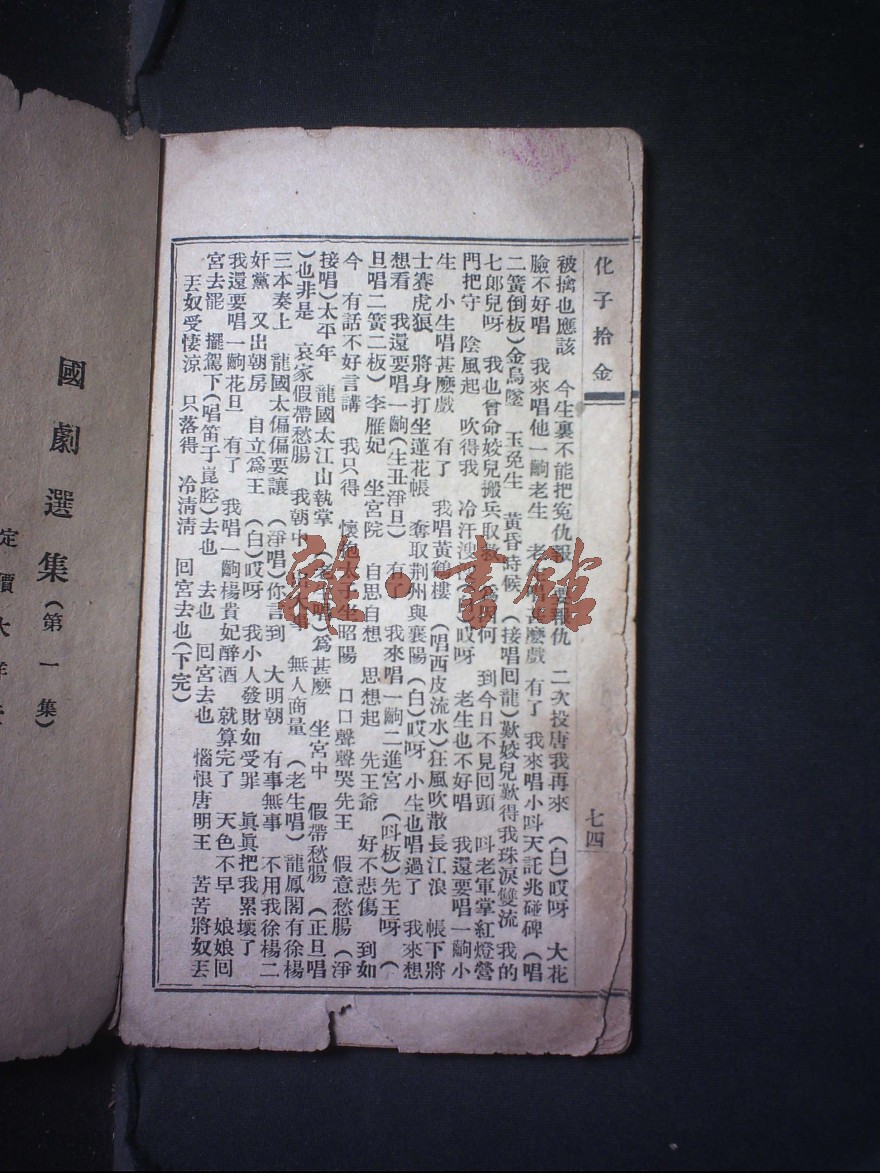 化子拾金
七四
被擒也應該　今生裏不能把寃仇報　要報仇　二次投唐我再來　(白)哎呀　大花
臉不好唱　我來唱他一齣老生　老生唱甚麽戲　有了　我來唱小呌天託兆碰碑　(唱
二簧倒板)金烏墜　玉兎生　黃昏時候　(接唱回龍)歎姣兒歎得我珠淚雙流　我的
七郎兒呀　我也曾命姣兒搬兵取救　爲何　到今日不見回頭　呌老軍掌紅燈營
門把守　陰風起　吹得我　冷汗　哎呀　老生也不好唱　我還要唱一齣小
生　小生唱甚麽戲　有了　我唱黃鶴樓　(唱西皮流水)狂風吹散長江浪　帳下將
士賽虎狼　將身打坐蓮花帳　奪取荆州與襄陽　(白)哎呀　小生也唱過了　我來想
想看　我還要唱一齣(生丑淨旦)　有了　我來唱一齣二進宮　(呌板)先王呀　(
旦唱二簧二板)李雁妃　坐宮院　自思自想　思想起　先王爺　好不悲傷　到如
今　有話不好言講　我只得　懷抱太子坐昭陽　口口聲聲哭先王　假意愁腸　(淨
接唱)太平年　龍國太江山執掌　(老　唱)爲甚麽　坐宮中　假帶愁腸　(正旦唱
)也非是　哀家假帶愁腸　我朝中　大事　無人商量　(老生唱)龍鳳閣有徐楊
三本奏上　龍國太偏偏要讓　(淨唱)你言到　大明朝　有事無事　不用我徐楊二
奸黨　又出朝房　自立爲王　(白)哎呀　我小人發財如受罪　眞眞把我累壞了
我還要唱一齣花旦　有了　我唱一齣楊貴妃醉酒　就算完了　天色不早　娘娘回
宮去罷　擺駕下(唱笛子崑腔)去也　去也　回宮去也　惱恨唐明王　苦苦將奴丟
丟奴受悽涼　只落得　冷淸淸　回宮去也(下完)
國劇選集(第一集)
定價大洋
雜·書館